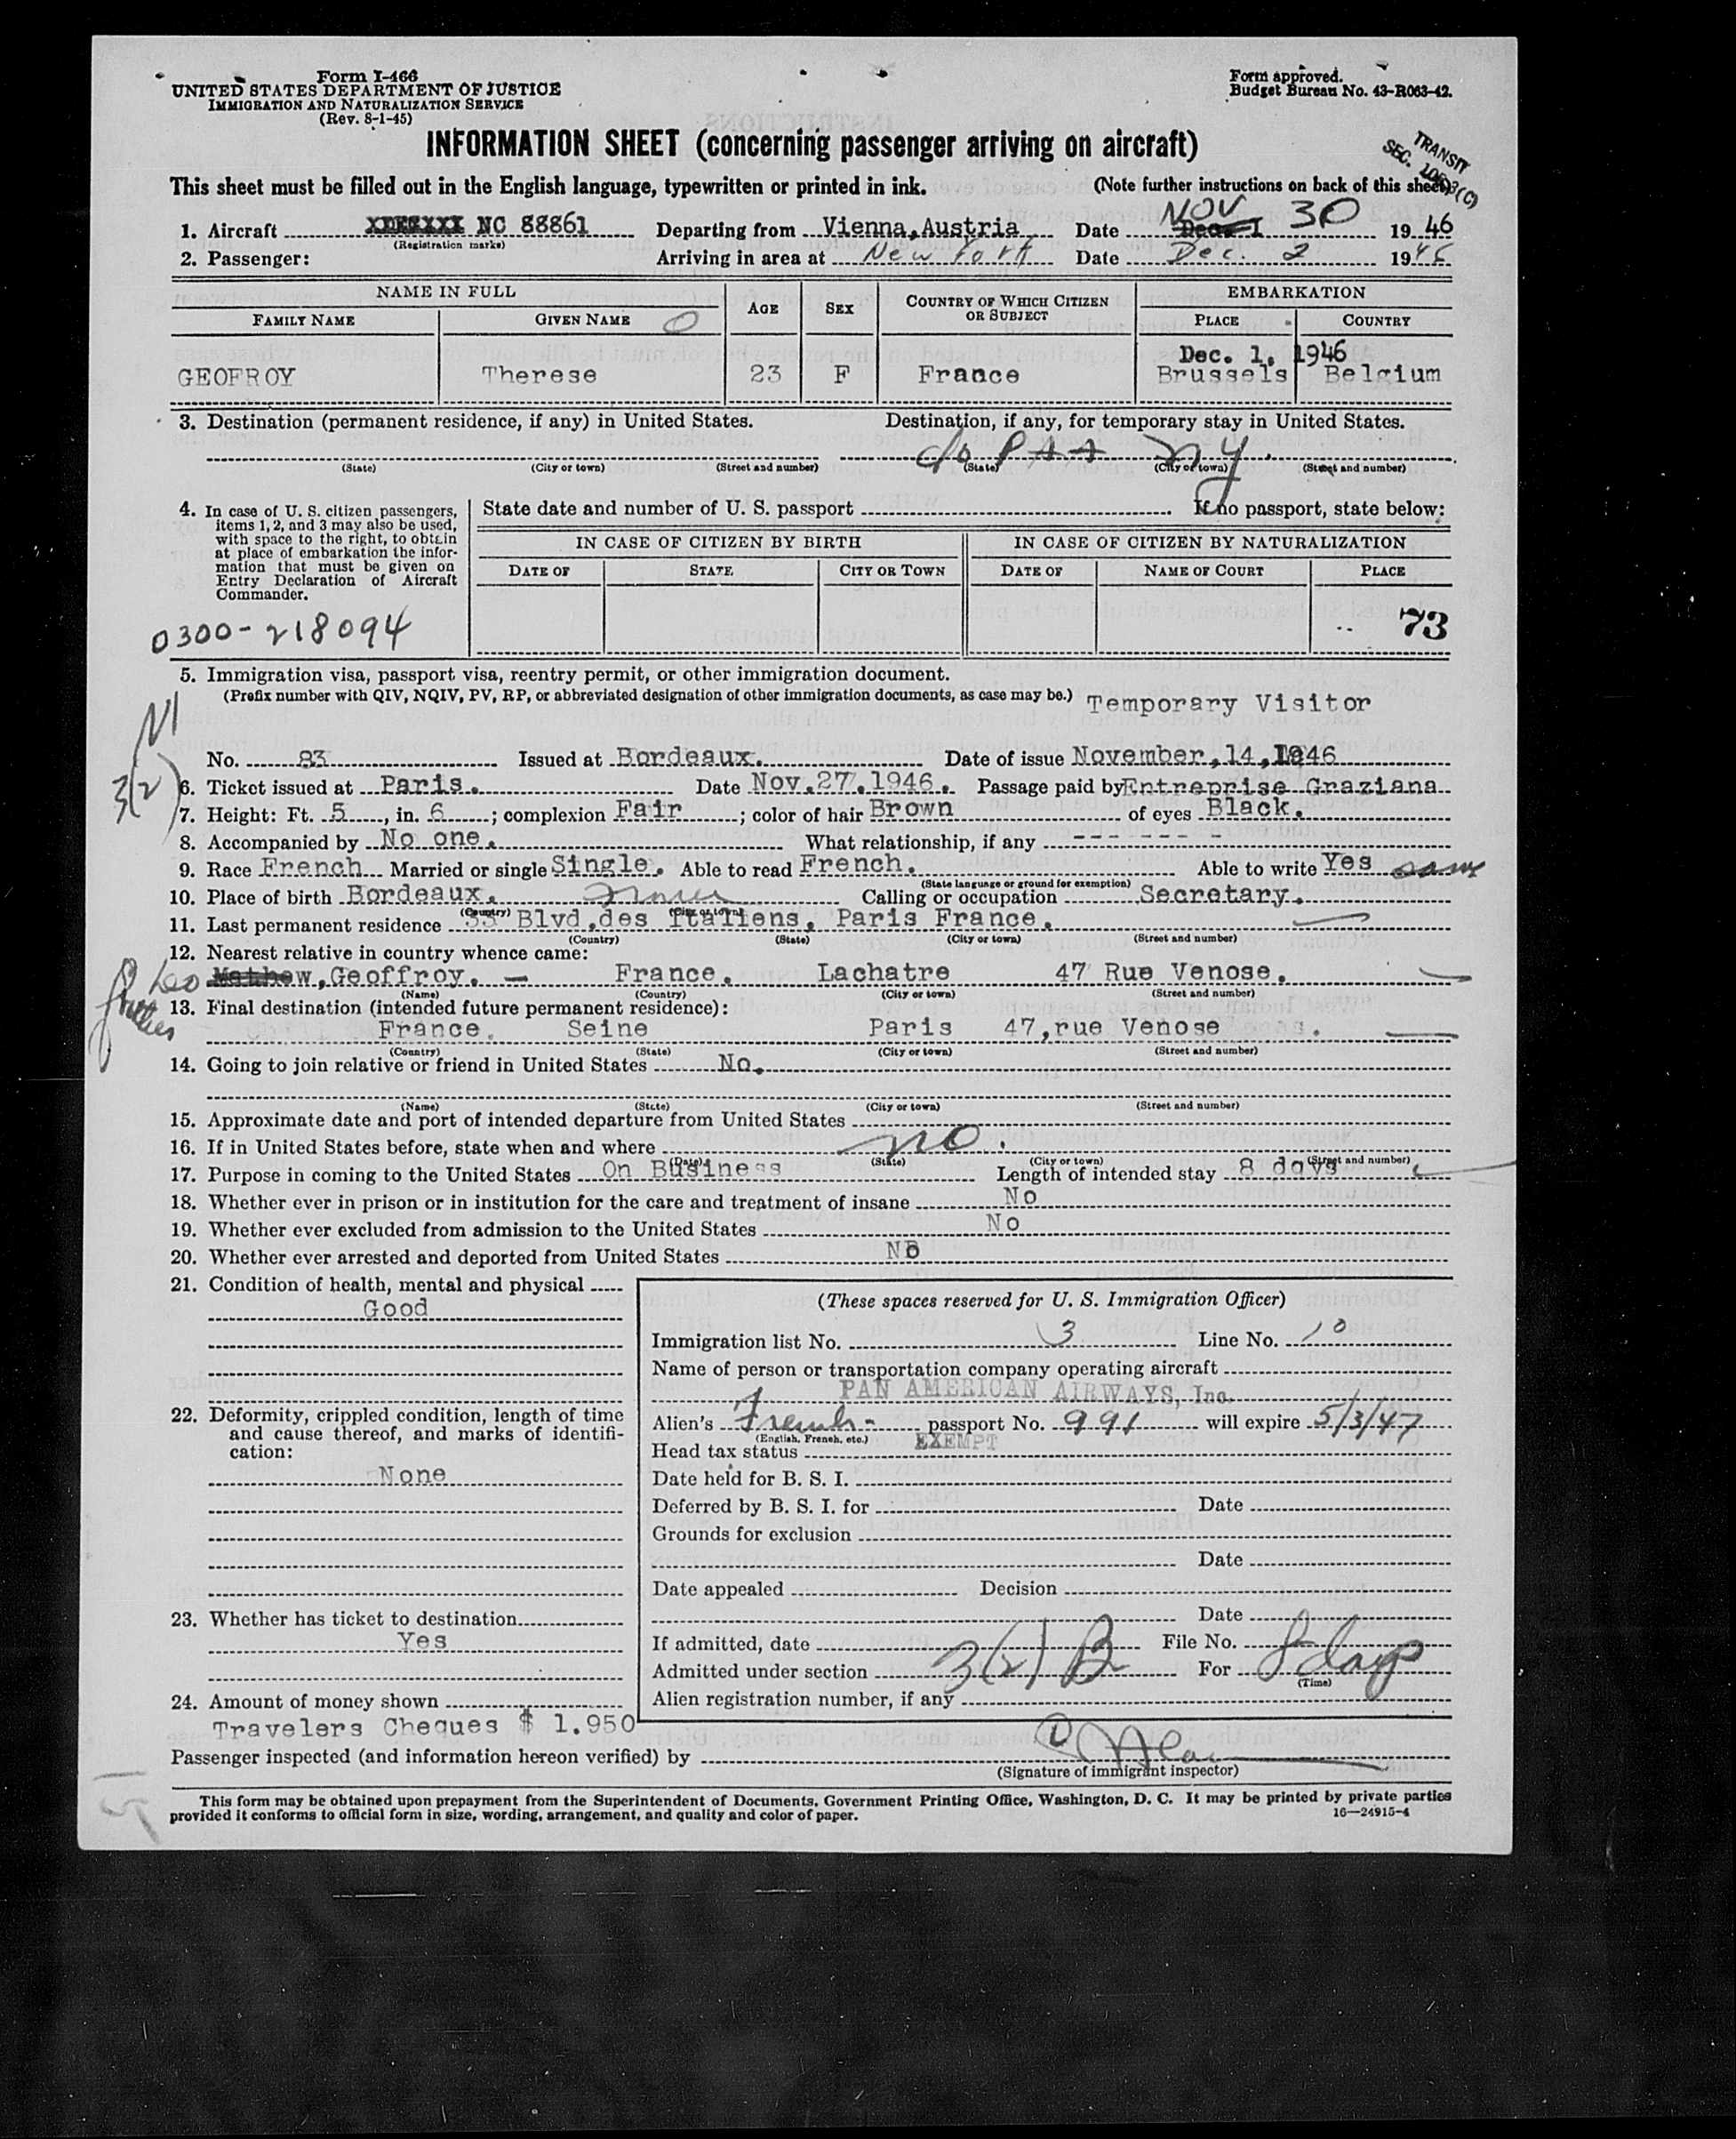 Form I-466
UNITED STATES DEPARTMENT OF JUSTICE
IMMIGRATION AND NATURALIZATION SERVICE
(Rev. 8-1-45)
Form approved.
Budget Bureau No. 43-R063-42.
INFORMATION SHEET (concerning passenger arriving on aircraft)
TRANSIT
SEC.
This sheet must be filled out in the English language, typewritten or printed in ink. (Note further instructions on back of this sheet)
1. Aircraft NC 88861 Departing from Vienna, Austria Date NOV 30 1946
(Registration marks)
2. Passenger: Arriving in area at New York Date Dec. 2 1946
NAME IN FULL AGE SEX COUNTRY OF WHICH CITIZEN OR SUBJECT EMBARKATION
FAMILY NAME GIVEN NAME PLACE COUNTRY
Dec. 1, 1946
GEOFROY Therese 23 F France Brussels Belgium
3. Destination (permanent residence, if any) in United States. Destination, if any, for temporary stay in United States.
c/o PAA NY.
(State) (City or town) (Street and number) (State) (City or town) (Street and number)
4. In case of U. S. citizen passengers, items 1, 2, and 3 may also be used, with space to the right, to obtain at place of embarkation the information that must be given on Entry Declaration of Aircraft Commander.
State date and number of U. S. passport If no passport, state below:
IN CASE OF CITIZEN BY BIRTH IN CASE OF CITIZEN BY NATURALIZATION
DATE OF STATE CITY OR TOWN DATE OF NAME OF COURT PLACE
0300-218094
73
5. Immigration visa, passport visa, reentry permit, or other immigration document.
(Prefix number with QIV, NQIV, PV, RP, or abbreviated designation of other immigration documents, as case may be.) Temporary Visitor
No. 83 Issued at Bordeaux. Date of issue November, 14, 1946
3(2)
6. Ticket issued at Paris. Date Nov.27.1946. Passage paid by Entreprise Graziana
7. Height: Ft. 5, in. 6; complexion Fair; color of hair Brown of eyes Black.
8. Accompanied by No one. What relationship, if any --- --- -
9. Race French Married or single Single. Able to read French. Able to write Yes same
(State language or ground for exemption)
10. Place of birth Bordeaux. France Calling or occupation Secretary.
(Country) (City or town)
11. Last permanent residence 33 Blvd.des Italiens. Paris France.
(Country) (State) (City or town) (Street and number)
12. Nearest relative in country whence came:
Leo Geoffroy. — France. Lachatre 47 Rue Venose.
(Name) (Country) (City or town) (Street and number)
13. Final destination (intended future permanent residence):
France. Seine Paris 47,rue Venose
(Country) (State) (City or town) (Street and number)
14. Going to join relative or friend in United States No.
(Name) (State) (City or town) (Street and number)
15. Approximate date and port of intended departure from United States
16. If in United States before, state when and where no.
(Date) (State) (City or town) (Street and number)
17. Purpose in coming to the United States On Business Length of intended stay 8 days
18. Whether ever in prison or in institution for the care and treatment of insane No
19. Whether ever excluded from admission to the United States No
20. Whether ever arrested and deported from United States No
21. Condition of health, mental and physical
Good
22. Deformity, crippled condition, length of time and cause thereof, and marks of identification:
None
23. Whether has ticket to destination
Yes
24. Amount of money shown
Travelers Cheques $ 1.950
(These spaces reserved for U. S. Immigration Officer)
Immigration list No. 3 Line No. 10
Name of person or transportation company operating aircraft
PAN AMERICAN AIRWAYS, Inc.
Alien's French passport No. 991 will expire 5/3/47
(English, French, etc.)
Head tax status EXEMPT
Date held for B. S. I.
Deferred by B. S. I. for Date
Grounds for exclusion
Date
Date appealed Decision
Date
If admitted, date File No.
Admitted under section 3(2) B For 8 days
(Time)
Alien registration number, if any
Passenger inspected (and information hereon verified) by
(Signature of immigrant inspector)
This form may be obtained upon prepayment from the Superintendent of Documents, Government Printing Office, Washington, D. C. It may be printed by private parties
provided it conforms to official form in size, wording, arrangement, and quality and color of paper. 16—24915-4